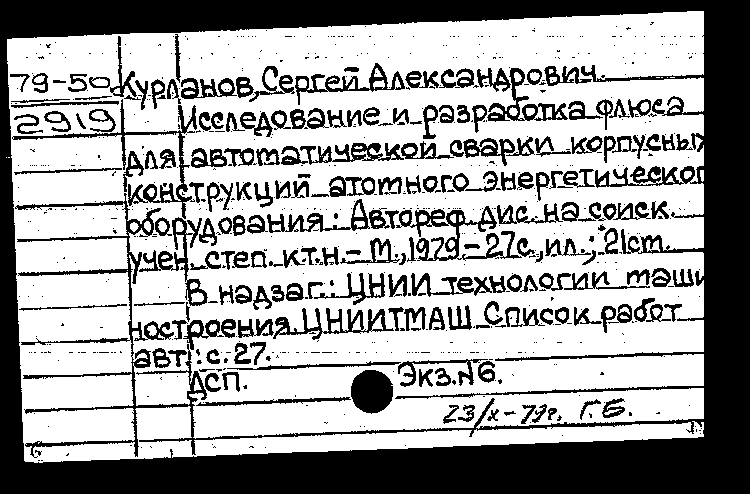 79-50 Курланов, Сергей Александрович.
2919 Исследование и разработка флюса
для автоматической сварки корпусных
конструкций атомного энергетического
оборудования: Автореф. дис. на соиск.
учен. степ. к.т.н. - М., 1979 - 27с., ил.; 21см.
В надзаг.: ЦНИИ технологии маши
ностроения ЦНИИТМАШ Список работ
авт.: с. 27.
ДСП. Экз.№6.
23/X-79г. Г.Б.